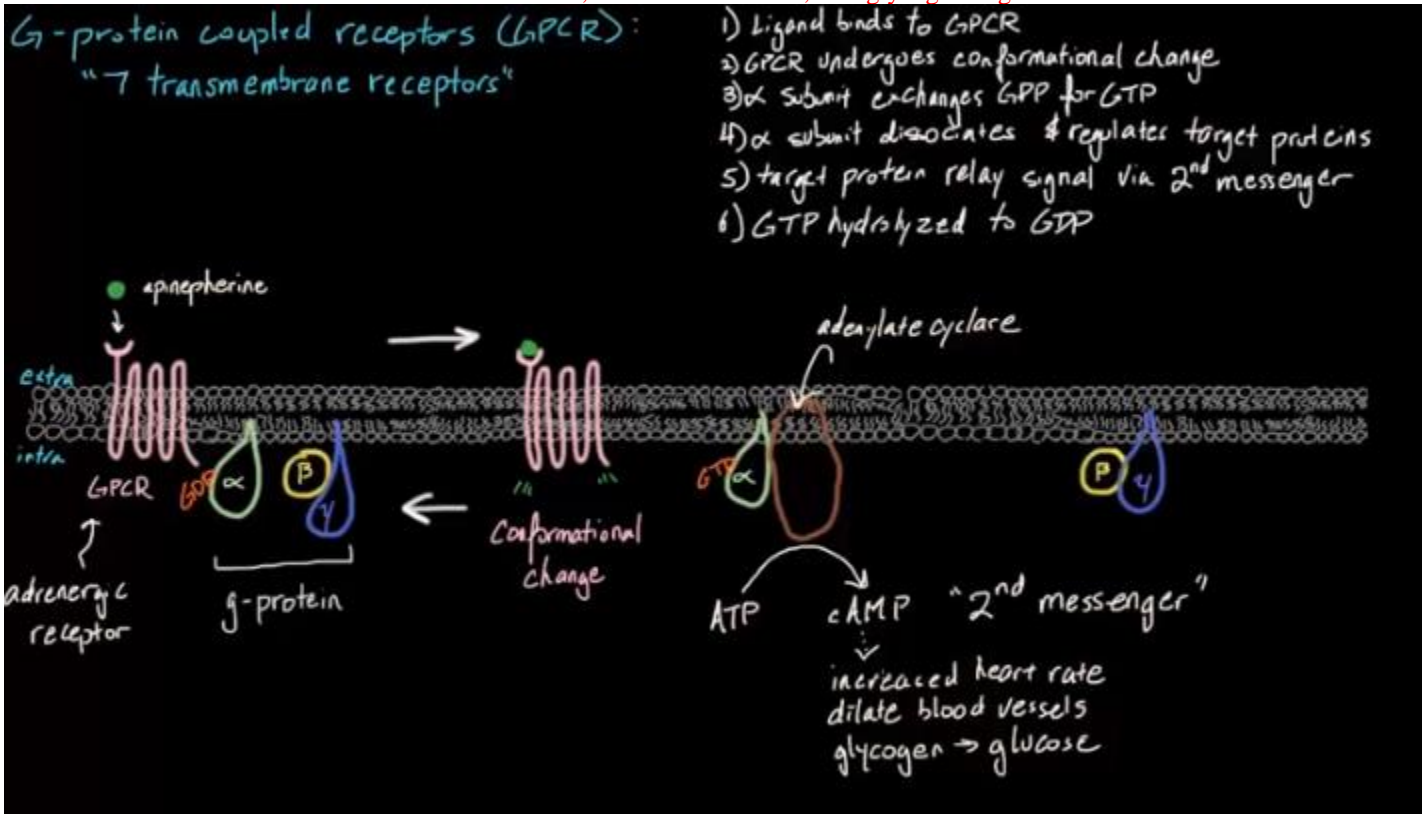 G-protein coupled receptors (GPCR):
"7 transmembrane receptors"
1) Ligand binds to GPCR
2) GPCR undergoes conformational change
3) α subunit exchanges GPP for GTP
4) α subunit dissociates & regulates target proteins
5) target protein relay signal via 2nd messenger
6) GTP hydrolyzed to GDP
epinepherine
adenylate cyclare
extra
intra
GPCR
GDP
α
β
γ
GTP
α
β
γ
Conformational
change
adrenergic
receptor
g-protein
ATP
cAMP
"2nd messenger"
increased heart rate
dilate blood vessels
glycogen → glucose